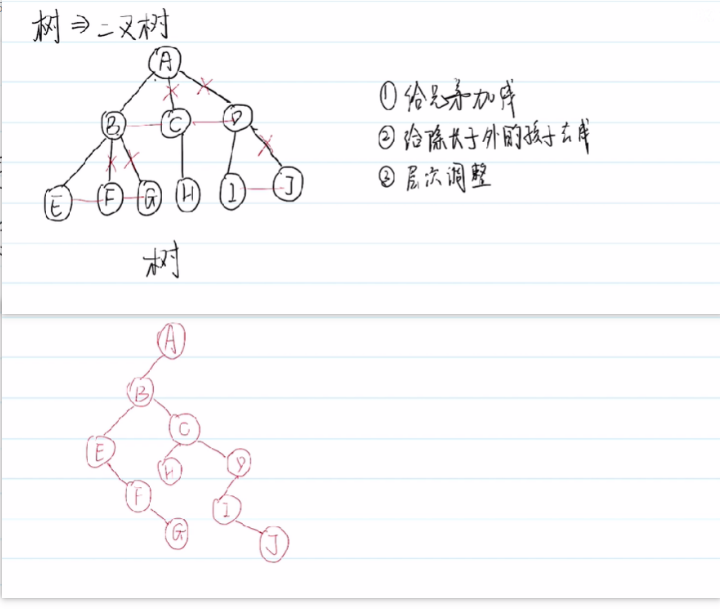 树⇒二叉树
A
B C D
E F G H I J
树
①给兄弟加线
②给除长子外的孩子去线
③层次调整
A
B
C
E H D
F I
G J